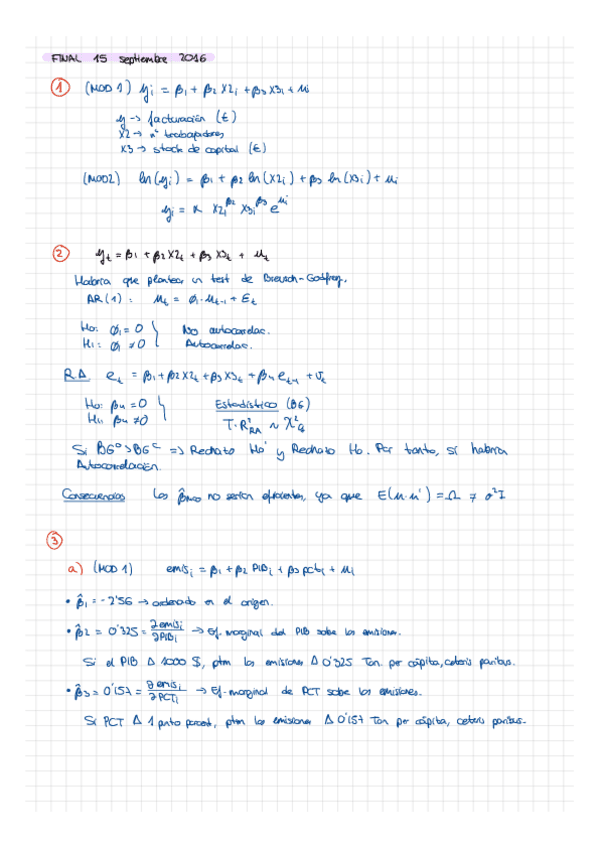 FINAL 15 septiembre 2016
① (MOD 1) yi = β1 + β2 X2i + β3 X3i + ui
y → facturación (€)
X2 → nº trabajadores
X3 → stock de capital (€)
(MOD2) ln(yi) = β1 + β2 ln(X2i) + β3 ln(X3i) + ui
yi = α X2i^β2 X3i^β3 e^ui
② yt = β1 + β2 X2t + β3 X3t + ut
Habría que plantear un test de Breusch-Godfrey.
AR(1): ut = φ1·ut-1 + Et
H0: φ1 = 0 } No autocorrelac.
H1: φ1 ≠ 0 } Autocorrelac.
RA et = β1 + β2 X2t + β3 X3t + β4 et-1 + vt
H0: β4 = 0 } Estadístico (BG)
H1: β4 ≠ 0 } T·R²RA ~ χ²q
Si BG⁰ > BGᶜ => Rechazo H0' y Rechazo H0. Por tanto, sí habría
Autocorrelación.
Consecuencias Los β̂MCO no serían eficientes, ya que E(u·u') = Ω ≠ σ²I
③
a) (MOD 1) emisi = β1 + β2 PIBi + β3 pcti + ui
• β̂1 = -2'56 → ordenada en el origen.
• β̂2 = 0'325 = ∂emisi/∂PIBi → Ef. marginal del PIB sobre las emisiones.
Si el PIB Δ 1000 $, ptm las emisiones Δ 0'325 Ton. per cápita, ceteris paribus.
• β̂3 = 0'157 = ∂emisi/∂PCTi → Ef. marginal de PCT sobre las emisiones.
Si PCT Δ 1 punto porcent, ptm las emisiones Δ 0'157 Ton per cápita, ceteris paribus.